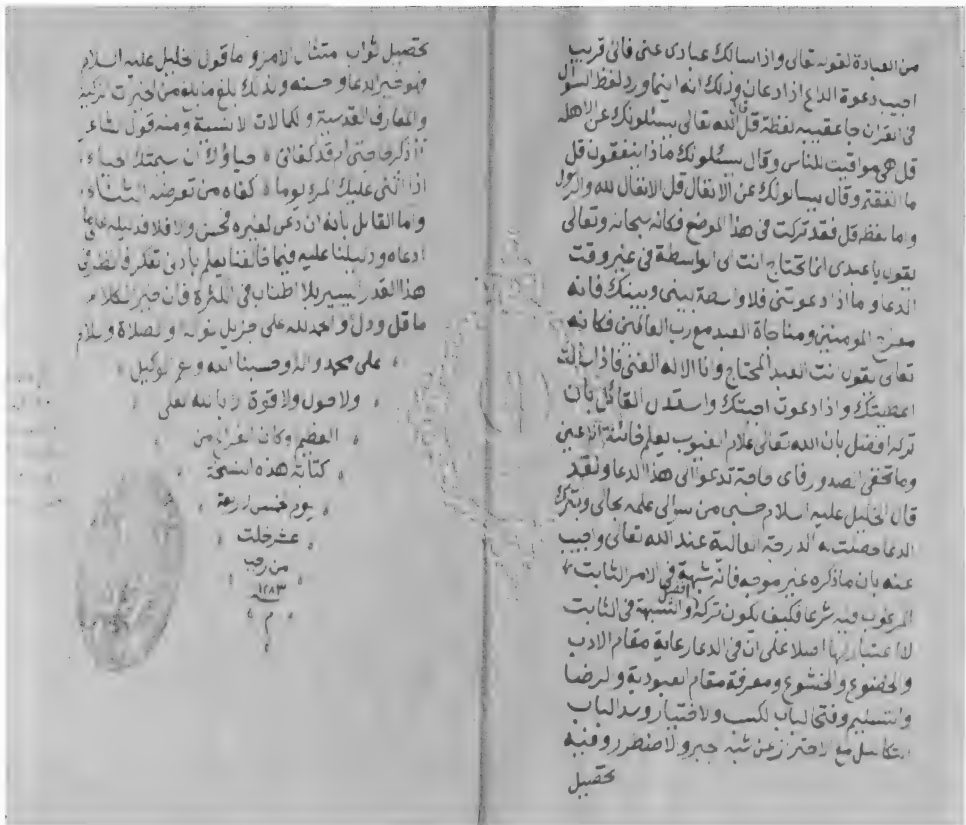 من العبادة لقوله تعالى واذا سالك عبادى عنى فانى قريب
اجيب دعوة الداع اذا دعان وذلك انه اينما ورد لفظ السؤال
فى القران جا عقيبه لفظة قل قال الله تعالى يسئلونك عن الاهلة
قل هى مواقيت للناس وقال يسئلونك ماذا ينفقون قل
ما انفقتم وقال يسالونك عن الانفال قل الانفال لله والرسول
واما لفظ قل فقد تركت فى هذا الموضع فكانه سبحانه وتعالى
يقول يا عبدى انما تحتاج انت الى الواسطة فى غير وقت
الدعا وما اذا دعوتنى فلا واسطة بينى وبينك فانه
مفزع المومنين ومناجاة العبد مع رب العالمين فكانه
تعالى يقول انت العبد المحتاج وانا الاله الغنى فاذا سالت
اعطيتك واذا دعوت اجبتك واستدل القائل بان
تركه افضل بان الله تعالى علام الغيوب يعلم خائنة الاعين
وما تخفى الصدور فاى حاجة تدعو الى هذا الدعا ولقد
قال الخليل عليه السلام حسبى من سوالى علمه بحالى وبترك
الدعا حصلت له الدرجة العالية عند الله تعالى واجيب
عنه بان ما ذكره غير موجه فانه شبهة فى الامر الثابت
المرغوب فيه شرعا فكيف يكون تركه افضل والشبهة فى الثابت
لا اعتبار لها اصلا على ان فى الدعا رعاية مقام الادب
والخضوع والخشوع ومعرفة مقام العبودية والرضا
والتسليم وفتح الباب لكسب والاختيار وسد الباب
التكاسل مع الاحتراز عن شبه جبر والاضطرار وفيه
تحصيل
تحصيل ثواب متثال الامر وما قول خليل عليه السلام
فهو خير الدعا وحسنه وذلك بلغ ما بلغ من
والمعارف القدسية والكمالات لانسية ومنه قول الشاعر
أأذكر حاجتى ام قد كفانى حياؤك ان سيمتك الحياء
اذا اثنى عليك المرء يوما كفاه من تعرضه الثناء
واما القائل بانه ان دعى لغيره فحسن والا فلا فدليله على ما
ادعاه ودليلنا عليه فيما خالفنا يعلم بادنى تفكر فالنظر فى
هذا القدر ليسير بلا اطناب فى فان خير الكلام
ما قل ودل والحمد لله على جزيل نواله والصلاة والسلام
على محمد واله وحسبنا الله ونعم الوكيل
ولا حول ولا قوة الا بالله لعلى
العظيم وكان الفراغ من
كتابة هذه النسخة
يوم خميس اربعة
عشر خلت
من رجب
١٢٨٣
م